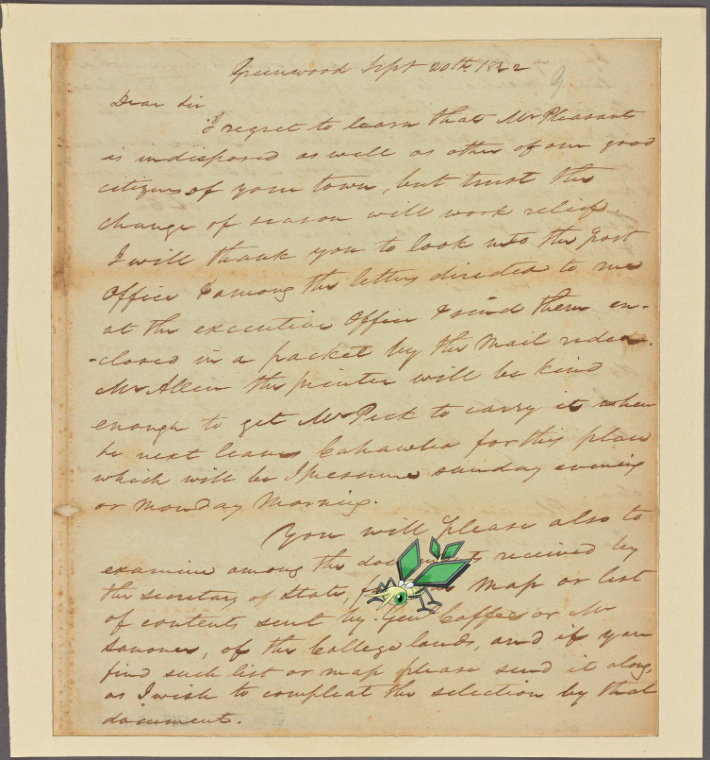 Greenwood Sept 20th 1822
9
Dear Sir
I regret to learn that Mr Pleasant
is indisposed as well as other of our good
citizens of your town, but trust the
change of season will work relief.
I will thank you to look into the Post
Office & among the letters directed to me
at the executive Office & send them en-
-closed in a packet by the Mail rider.
Mr Allen the printer will be kind
enough to get Mr Peck to carry it when
he next leaves Cahawba for this place
which will be I presume sunday evening
or monday Morning.
You will please also to
examine among the received by
the secretary of State, map or list
of contents sent by Genl Coffee or Mr
of the College lands, and if you
find such list or map please send it along,
as I wish to compleat the selection by that
document.